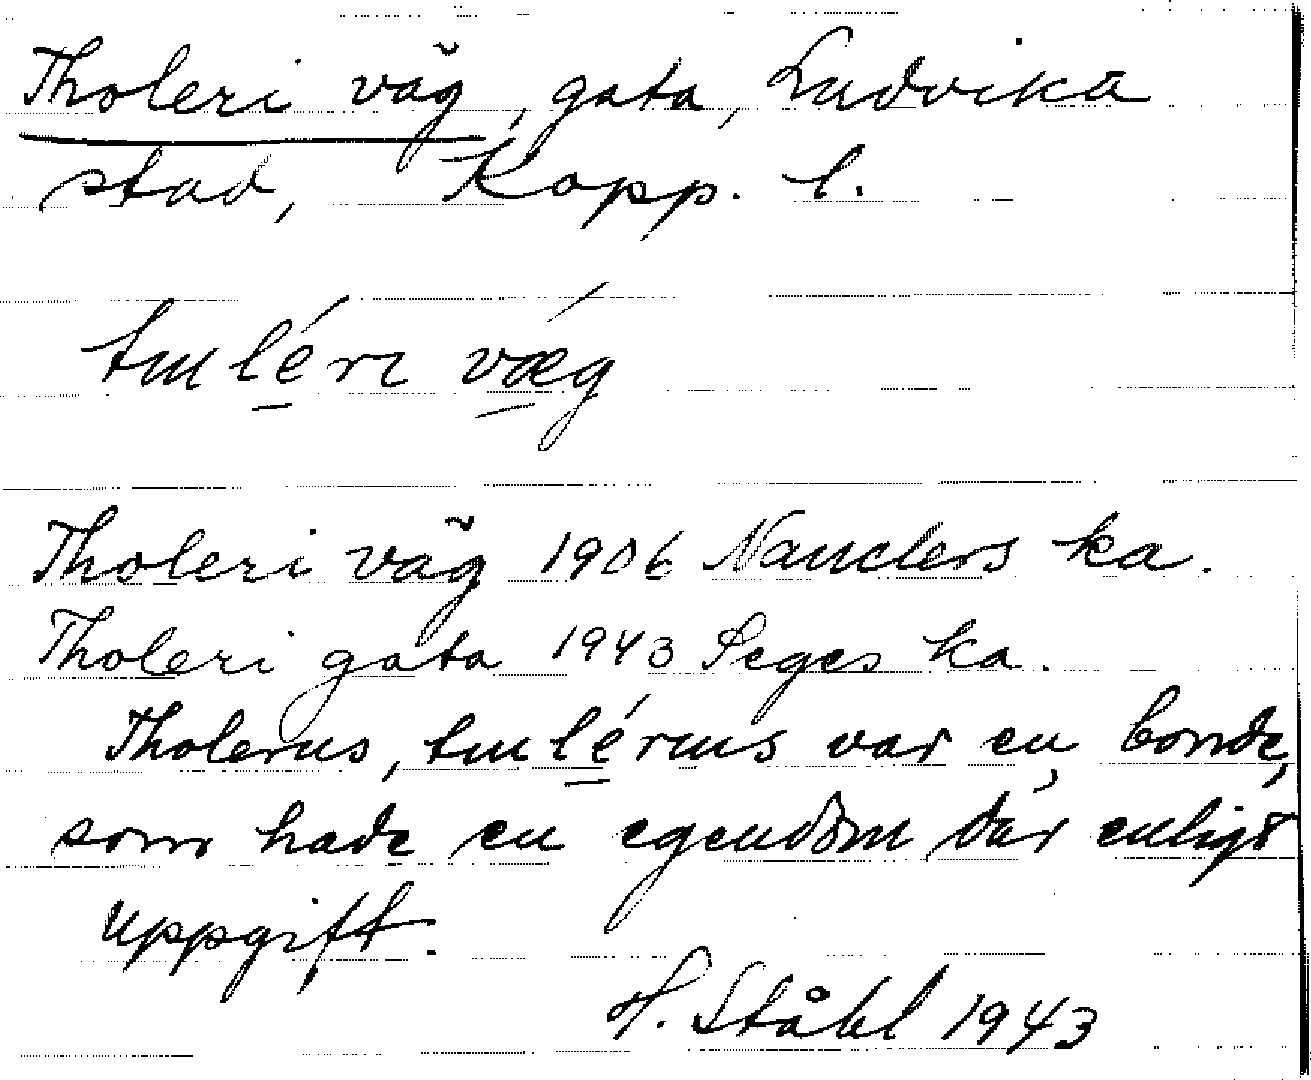 Tholeri väg, gata, Ludvika
stad, Kopp. l.
tɯléri væg
Tholeri väg 1906 Nanclers ka.
Tholeri gata 1943 Seges ka.
Tholerus, tɯlérɯs var en bonde,
som hade en egendom där enligt
uppgift.
H. Ståhl 1943